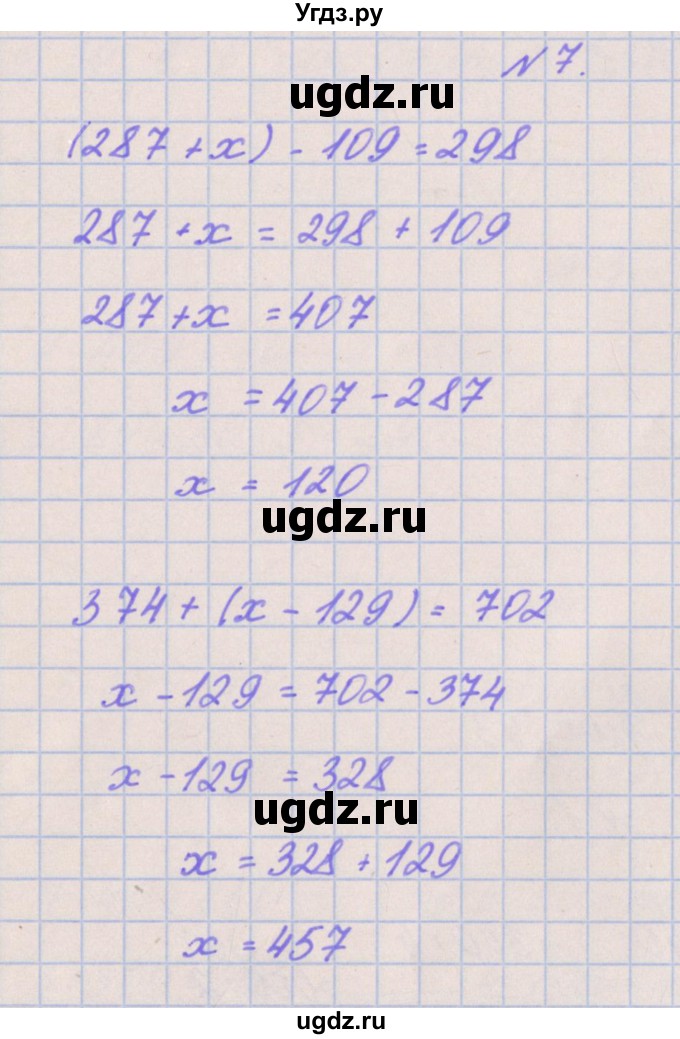 Угдз.ру
N 7.
ugdz.ru
(287 + x) - 109 = 298
287 + x = 298 + 109
287 + x = 407
x = 407 - 287
x = 120
ugdz.ru
374 + (x - 129) = 702
x - 129 = 702 - 374
x - 129 = 328
ugdz.ru
x = 328 + 129
x = 457
ugdz.ru